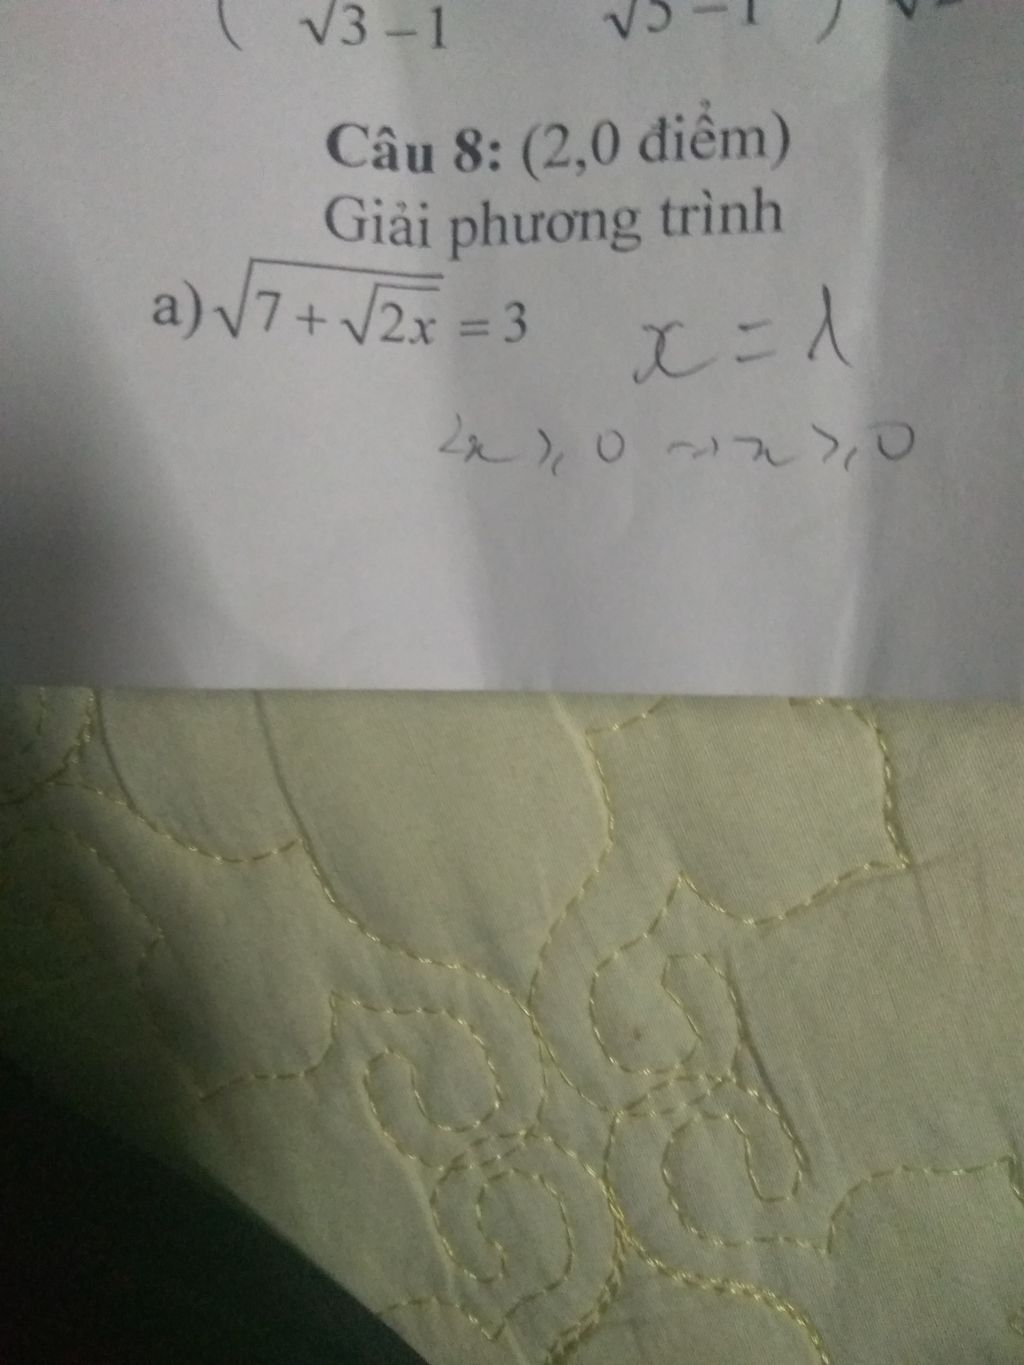 ( √3 – 1 √5 – 1 )
Câu 8: (2,0 điểm)
Giải phương trình
a) √(7 + √(2x)) = 3
x = λ
2x ≥ 0 → x ≥ 0